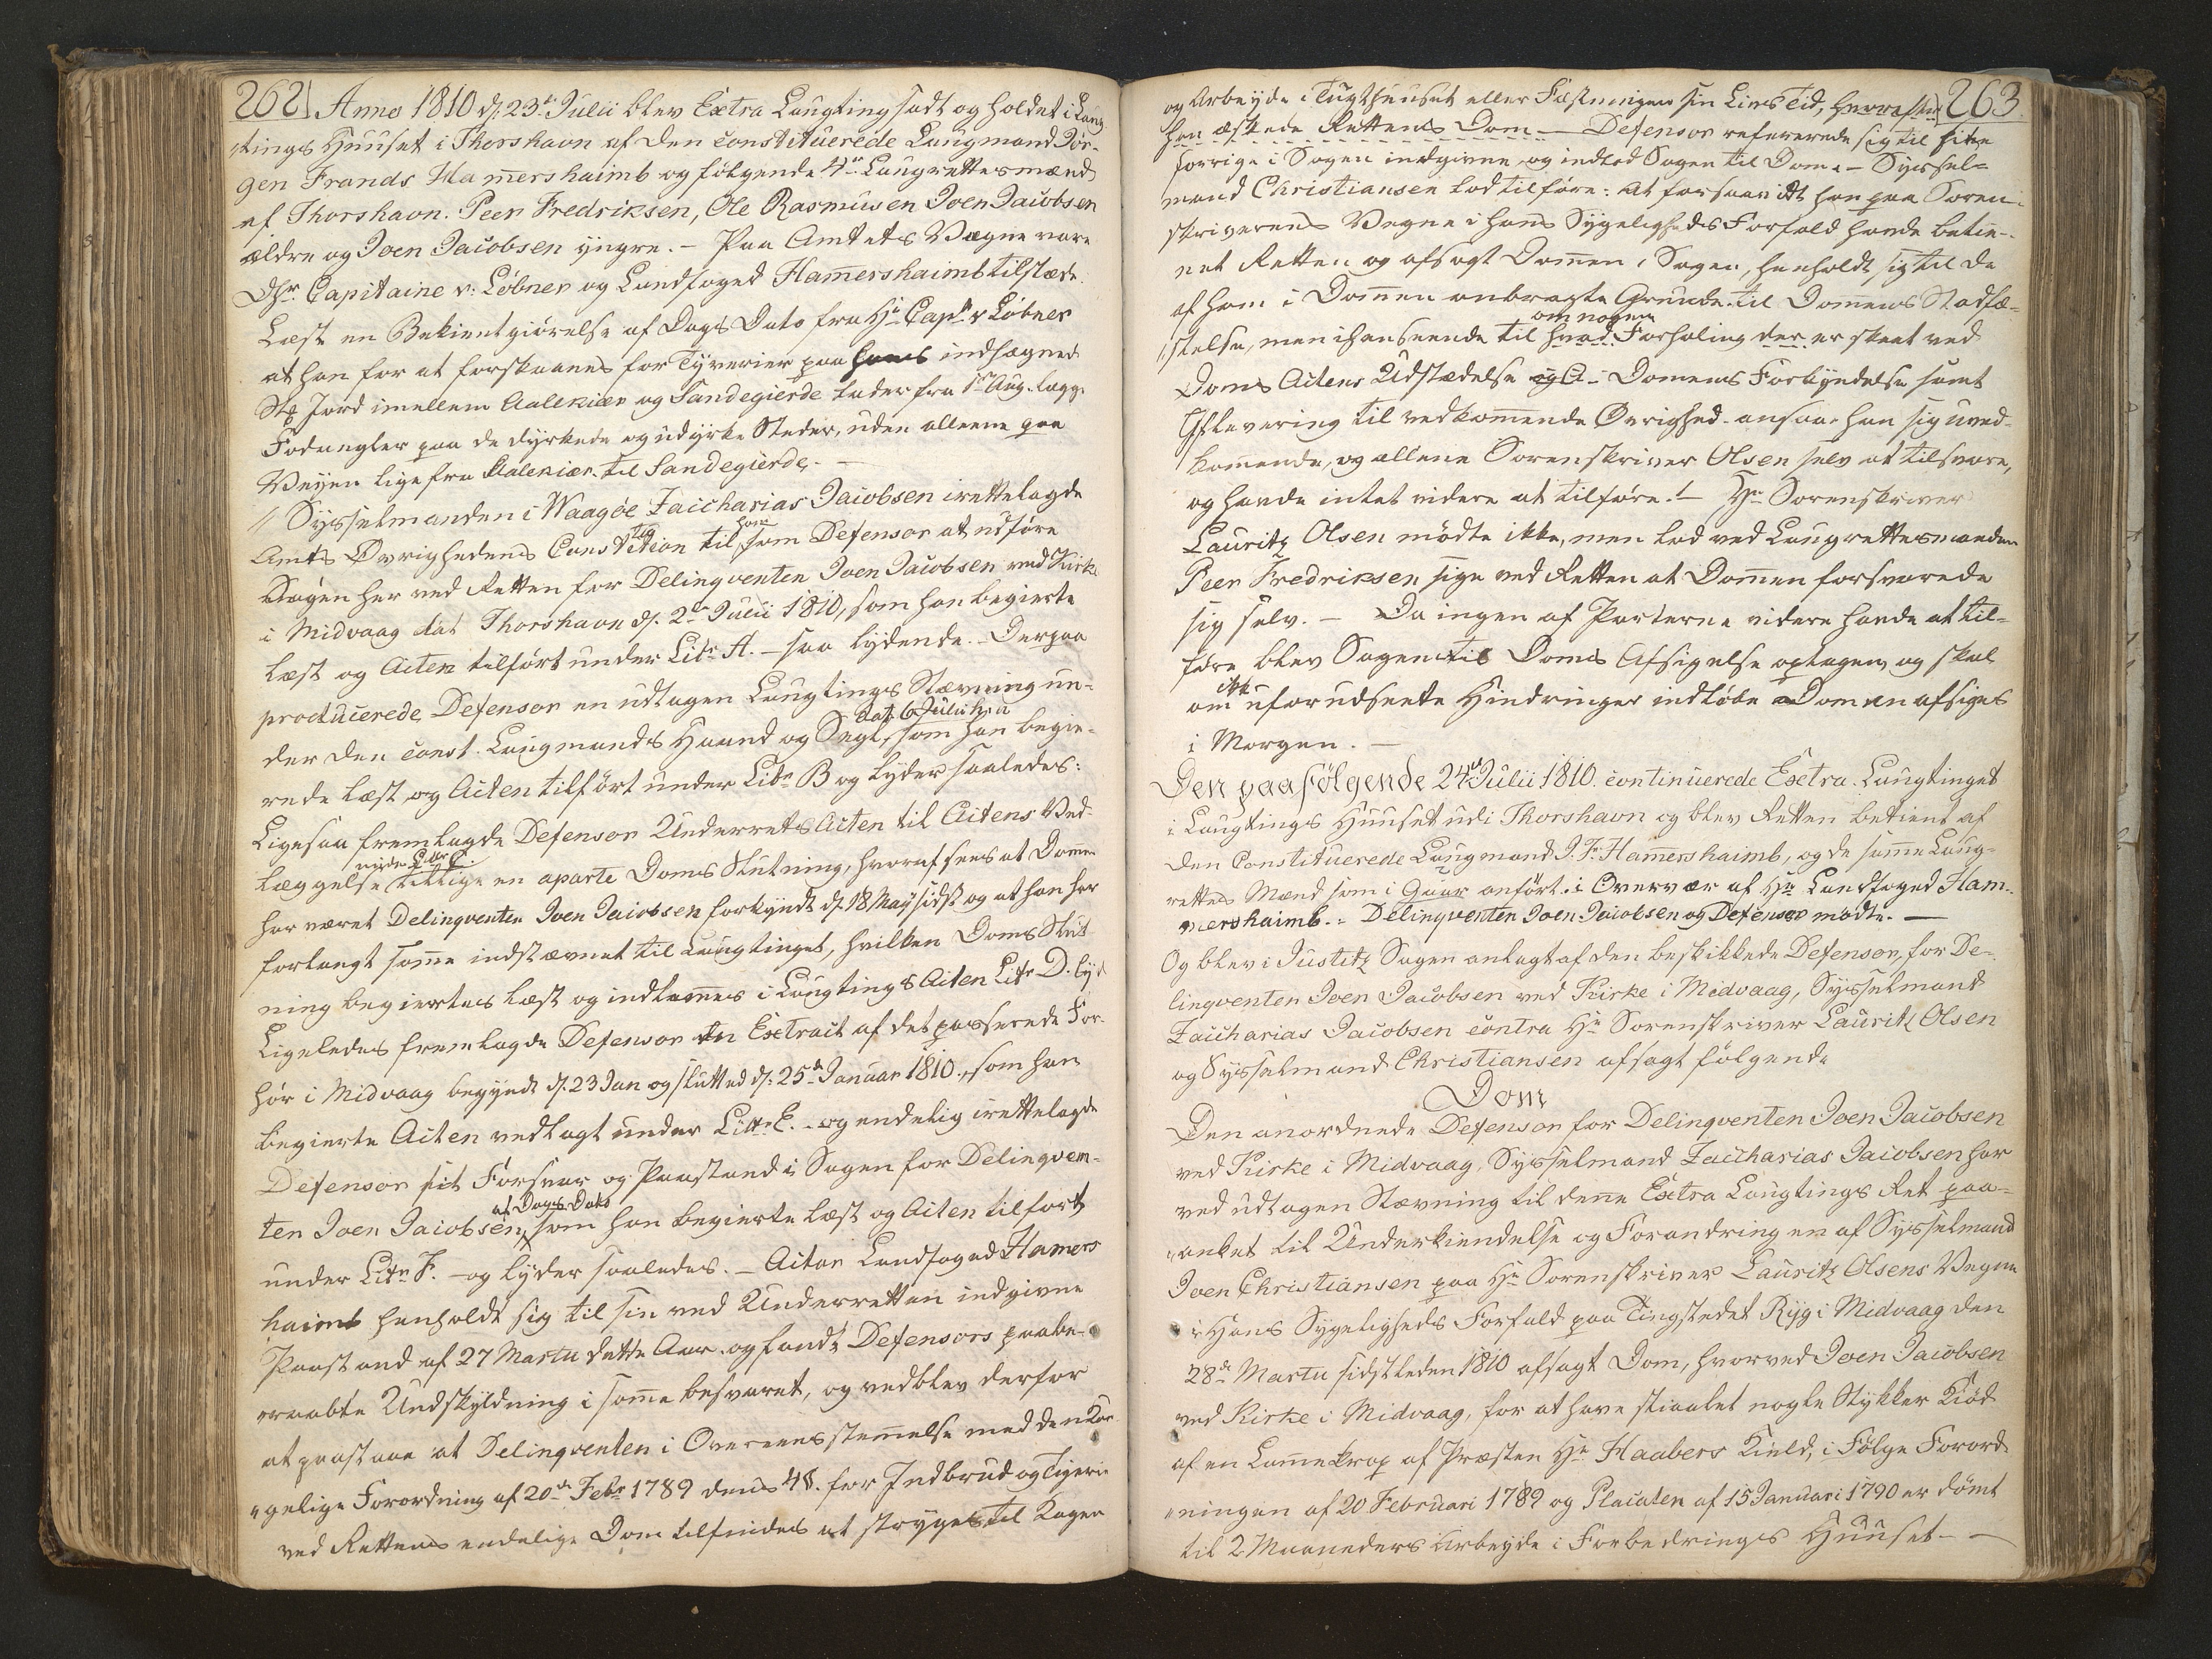 262 Anno 1810 d. 23de Julii blev Extra Laugting sadt og holdet i Laug
tings Huuset i Thorshavn af den constituerede Laugmand Jør-
gen Frands Hamershaimb og følgende 4re Laugrettesmænd
af Thorshavn. Peer Fredriksen, Ole Rasmusen Joen Jacobsen
ældre og Joen Jacobsen yngre. – Paa Amtets Vægne vare
Dhr. Capitaine v: Løbner og Landfoged Hamershaimb tilstæde.
Læst en Bekientgiørelse af Dags Dato fra Hr Capt v Løbner
at han for at forskaanes for Tyverier paa hans indhægned
Stk Jord imellem Aalekiær og Sandegierde lader fra 1te Aug. lægge
Fodangler paa de dyrkede og udyrke Steder, uden alleene paa
Veyen lige fra Aalekiær til Sandegierde. –
// Sysselmanden i Waagöe Zaicharias Jacobsen irettelagde
Amts Øvrighedens Constitution til ham som Defensor at udføre
Sagen her ved Retten for Delinqventen Joen Jacobsen ved Kirke
i Midvaag dat Thorshavn d. 2de Julii 1810, som han begierte
læst og Acten tilført under Litr A. – saa lydende. – Derpaa
producerede Defensor en udtagen Laugtings Stævning un-
der den const. Laugmands Haand og Segl, dat 6 Julii h. a som han begie-
rede læst og Acten tilført under Litr B og lyder saaledes:
Ligesaa fremlagde Defensor Underrets Acten til Actens Ved-
læggelse under Littr C. tillige en aparte Doms Slutning, hvoraf sees at Domen
har været Delinqventen Joen Jacobsen forkyndt d. 18 May sidst og at han har
forlangt same indstævnet til Laugtinget, hvilken Doms Slut
ning begiertes læst og indlemes i Laugtings Acten Litr D. lyd
Ligeledes fremlagde Defensor en Extract af det passerede For-
hör i Midvaag begyndt d. 23 Jan og slutted d. 25de Januar 1810, som han
begierte Acten vedlagt under Littr E. – og endelig irettelagde
Defensor sit Forsvar og Paastand i Sagen for Delinqven-
ten Joen Jacobsen, af Dags Dato som han begierte læst og Acten tilført
under Litr F. – og lyder saaledes. – Actor Landfoged Hamers
haimb henholdt sig til sin ved Underretten indgivne
Paastand af 27 Martii dette Aar og fandt Defensors paabe-
raabte Undskyldning i same besvaret, og vedblev derfor
at paastaae at Delinqventen i Overeensstemelse med den Kon
gelige Forordning af 20de Febr 1789 dens 4§. for Indbrud og Tyverie
ved Rettens endelige Dom tilfindes at stryges til Kagen
og Arbeyde i Tugthuuset eller Fæstningen sin Livs Tid, hvorefter 263.
han æskede Rettens Dom – Defensor refererede sig til sit
forrige i Sagen indgivne og indlod Sagen til Dom. – Syssel-
mand Christiansen lod tilføre: At forsaavidt han paa Soren-
skriverens Vegne i hans Sygeligheds Forfald havde betie-
net Retten og afsagt Domen i Sagen, henholdt sig til de
af ham i Domen anbragte Grunde til Domens Stadfæ-
stelse, men i henseende til hvad om nogen Forhaling der er skeet ved
Doms Actens Udstædelse og Domens Forkyndelse samt
Aflevering til vedkomende Øvrighed ansaae han sig uved-
komende, og allene Sorenskriver Olsen selv at tilsvare,
og havde intet videre at tilføre. – Hr Sorenskriver
Lauritz Olsen mødte ikke, men lod ved Laugrettesmanden
Peer Fredriksen sige ved Retten at Domen forsvarede
sig selv. – Da ingen af Parterne videre havde at til-
føre blev Sagen til Doms Afsigelse optagen, og skal
om ikke uforudseete Hindringer indløbe Domen afsiges
i Morgen. –
Den paafølgende 24de Julii 1810. continuerede Extra Laugtinget
i Laugtings Huuset udi Thorshavn og blev Retten betient af
den Constituerede Laugmand J. Fr. Hamershaimb, og de same Laug-
rettes Mænd som i Gaar anført. i Overvær af Hr Landfoged Ham-
mershaimb. – Delinqventen Joen Jacobsen og Defensor mødte. –
Og blev i Justitz Sagen anlagt af den beskikkede Defensor for De-
linqventen Joen Jacobsen ved Kirke i Midvaag, Sysselmand
Zaicharias Jacobsen contra Hr Sorenskriver Lauritz Olsen
og Sysselmand Christiansen afsagt følgende
Dom
Den anordnede Defensor for Delinqventen Joen Jacobsen
ved Kirke i Midvaag, Sysselmand Zaicharias Jacobsen har
ved udtagen Stævning til dene Extra Laugtings Ret paa-
anket til Underkiendelse og Forandring en af Sysselmand
Joen Christiansen paa Hr Sorenskriver Lauritz Olsens Vegne
i Hans Sygeligheds Forfald paa Tingstedet Ryg i Midvaag den
28de Martii sidstleden 1810 afsagt Dom, hvorved Joen Jacobsen
ved Kirke i Midvaag, for at have stiaalet nogle Stykker Kiød
af en Lamekrop af Præsten Hr Haabers Kield, i Følge Forord
ningen af 20 Februari 1789 og Placaten af 15 Januari 1790 er dømt
til 2 Maaneders Arbeyde i Forbedrings Huuset –